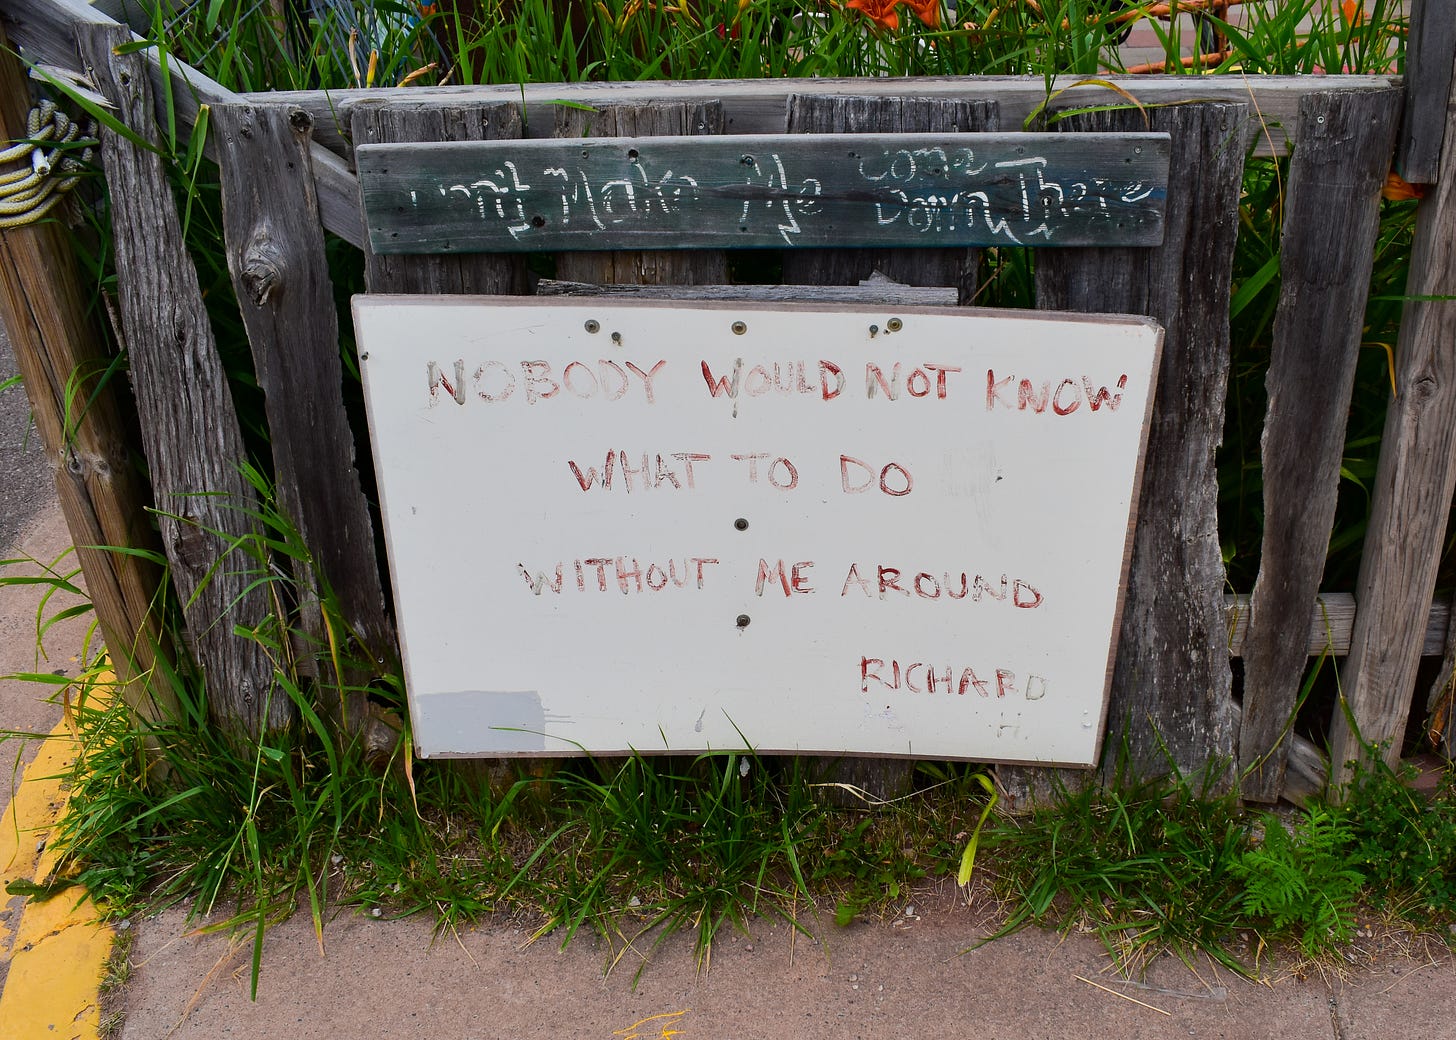 Don't Make Me Come Down There
NOBODY WOULD NOT KNOW
WHAT TO DO
WITHOUT ME AROUND
RICHARD
H.